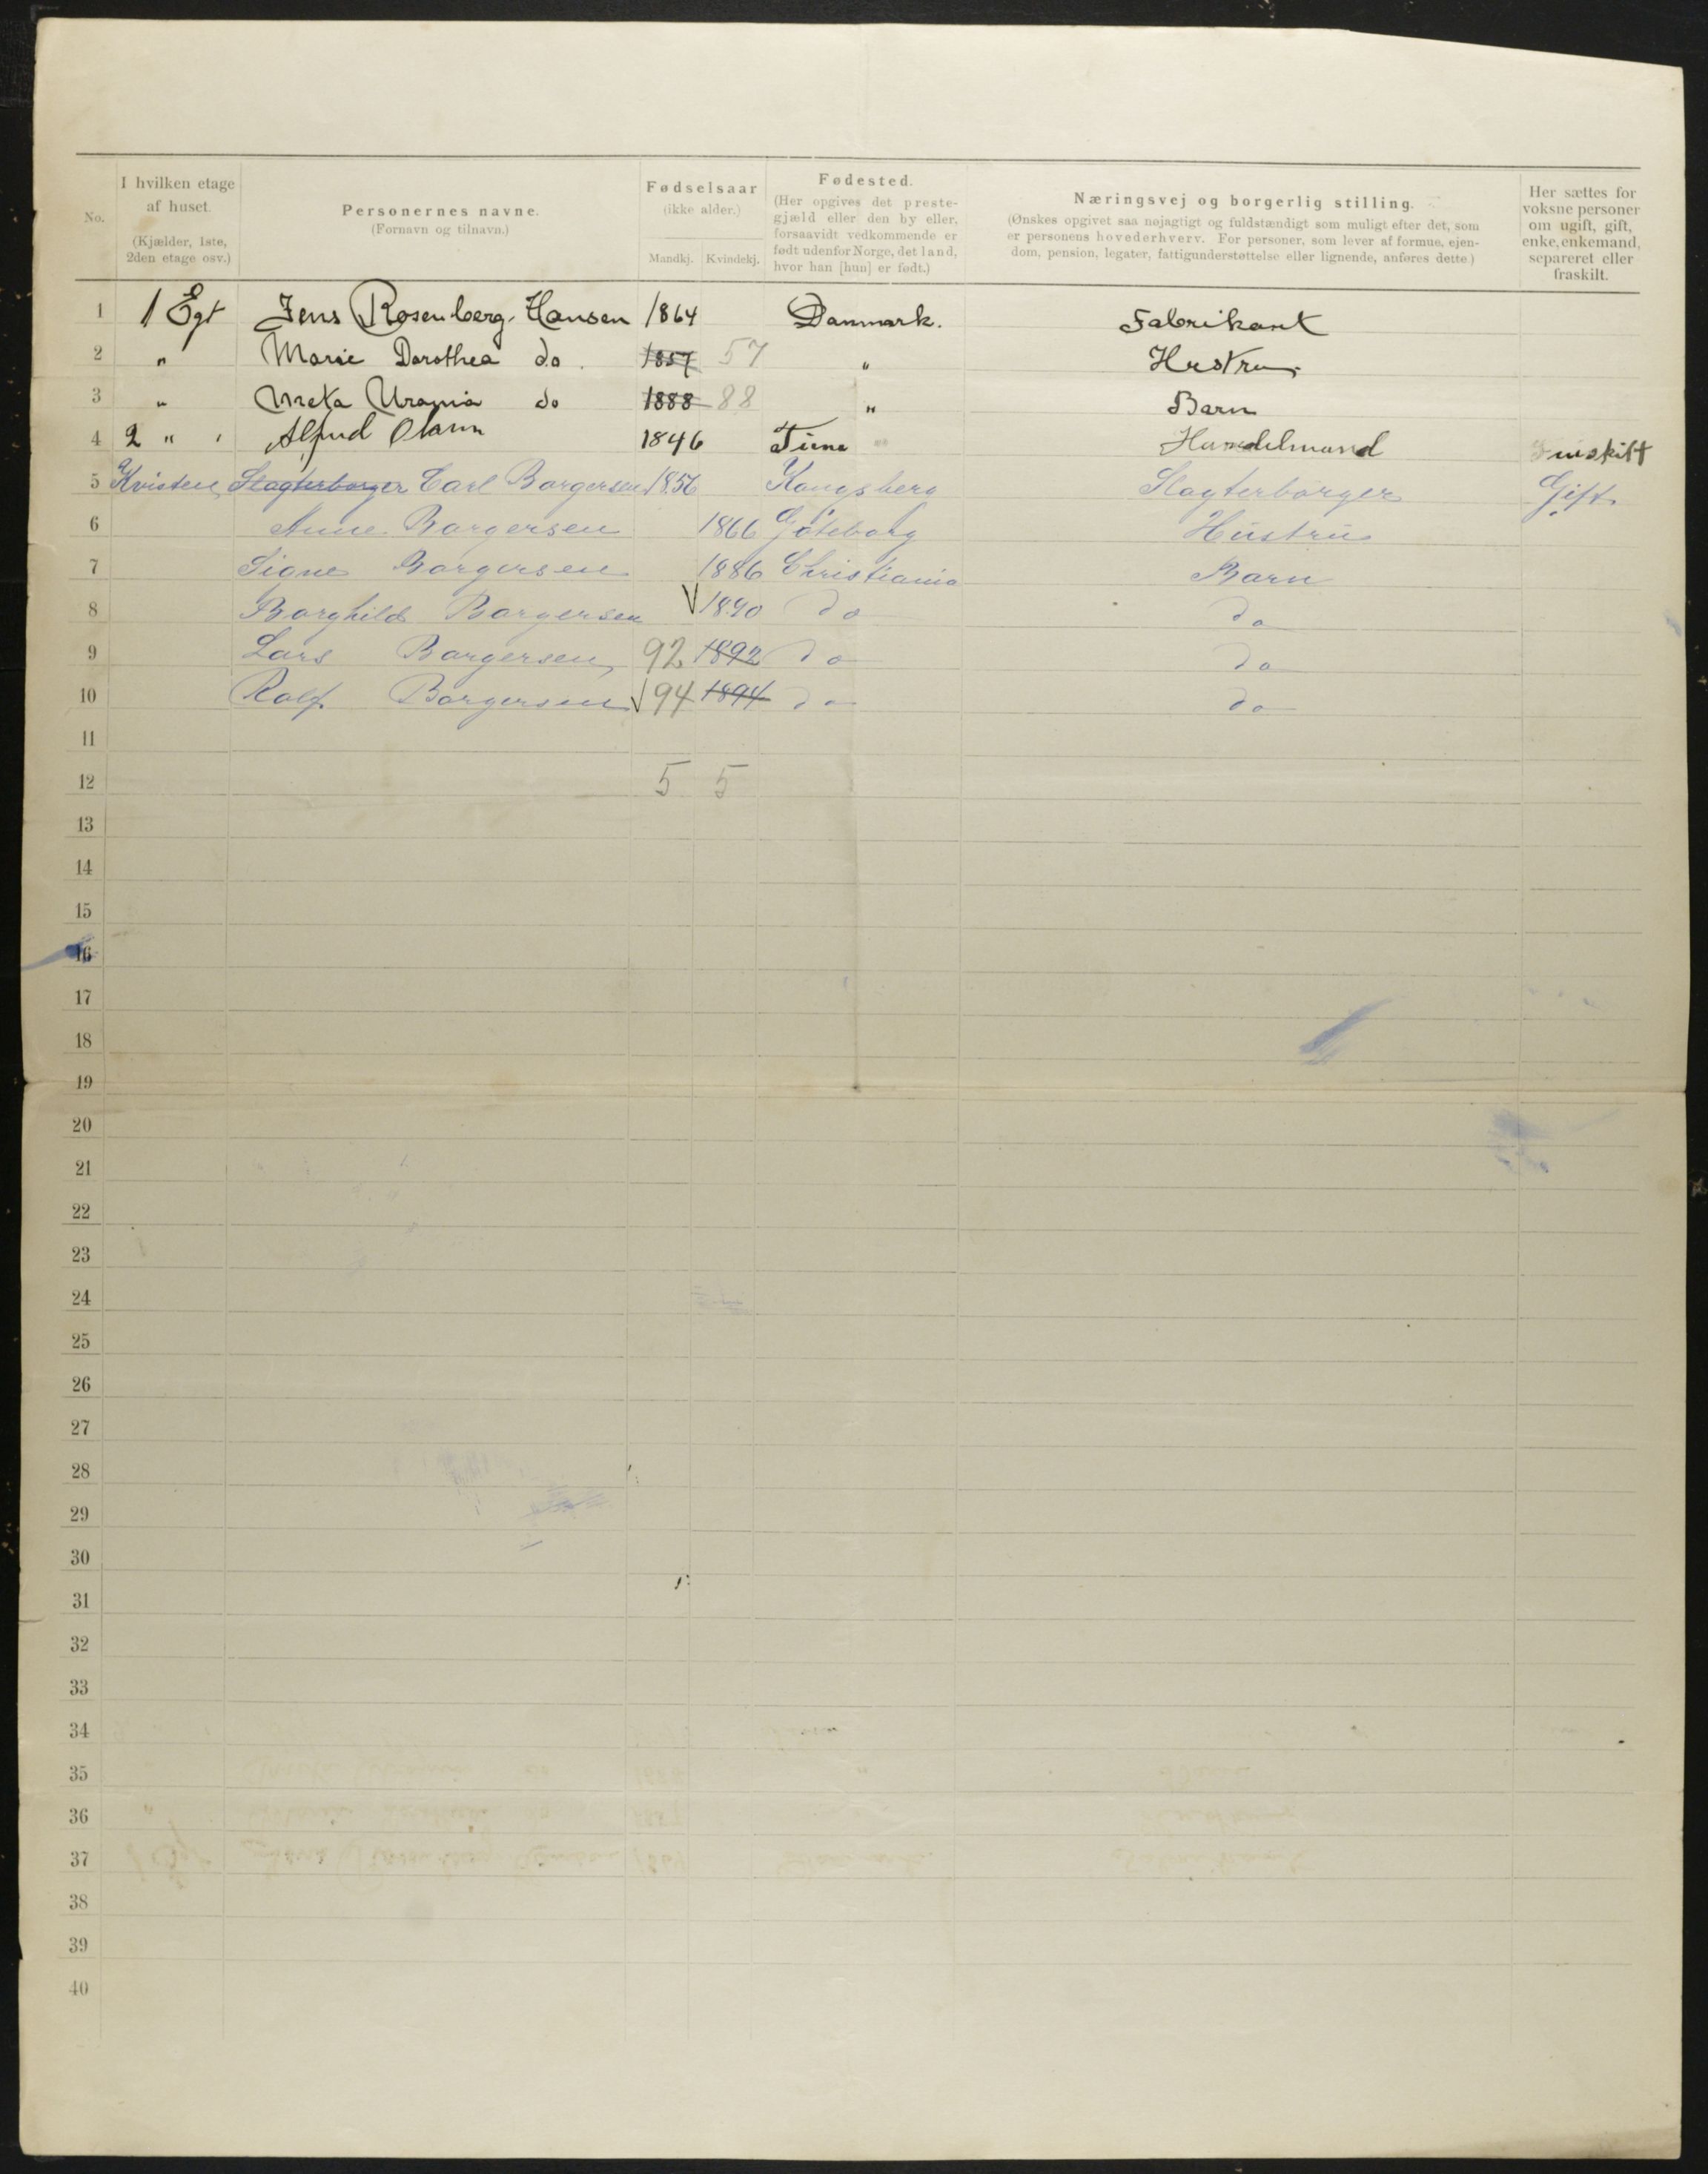 No.
I hvilken etage af huset.
(Kjælder, 1ste, 2den etage osv.)
Personernes navne.
(Fornavn og tilnavn.)
Fødselsaar
(ikke alder.)
Mandkj. Kvindekj.
Fødested.
(Her opgives det preste-
gjæld eller den by eller,
forsaavidt vedkommende er
født udenfor Norge, det land,
hvor han [hun] er født.)
Næringsvej og borgerlig stilling.
(Ønskes opgivet saa nøjagtigt og fuldstændigt som muligt efter det, som
er personens hovederhverv. For personer, som lever af formue, ejen-
dom, pension, legater, fattigunderstøttelse eller lignende, anføres dette.)
Her sættes for
voksne personer
om ugift, gift,
enke, enkemand,
separeret eller
fraskilt.
1 1 Egt Jens Rosenberg Hansen 1864 Danmark. Fabrikant
2 " Marie Dorothea do. 1857 57 " Hustru
3 " Meta Urania do 1888 88 " Barn
4 2 " Alfred 1846 Handelmand
5 Kvisten Slagterborger Carl Borgersen 1856 Kongsberg Slagterborger Gift
6 Anne Borgersen 1866 Gøteborg Hustru
7 Signe Borgersen 1886 Christiania Barn
8 Borghild Borgersen 1890 do do
9 Lars Borgersen 92 1892 do do
10 Rolf Borgersen 94 1894 do do
11
12 5 5
13
14
15
16
17
18
19
20
21
22
23
24
25
26
27
28
29
30
31
32
33
34
35
36
37
38
39
40